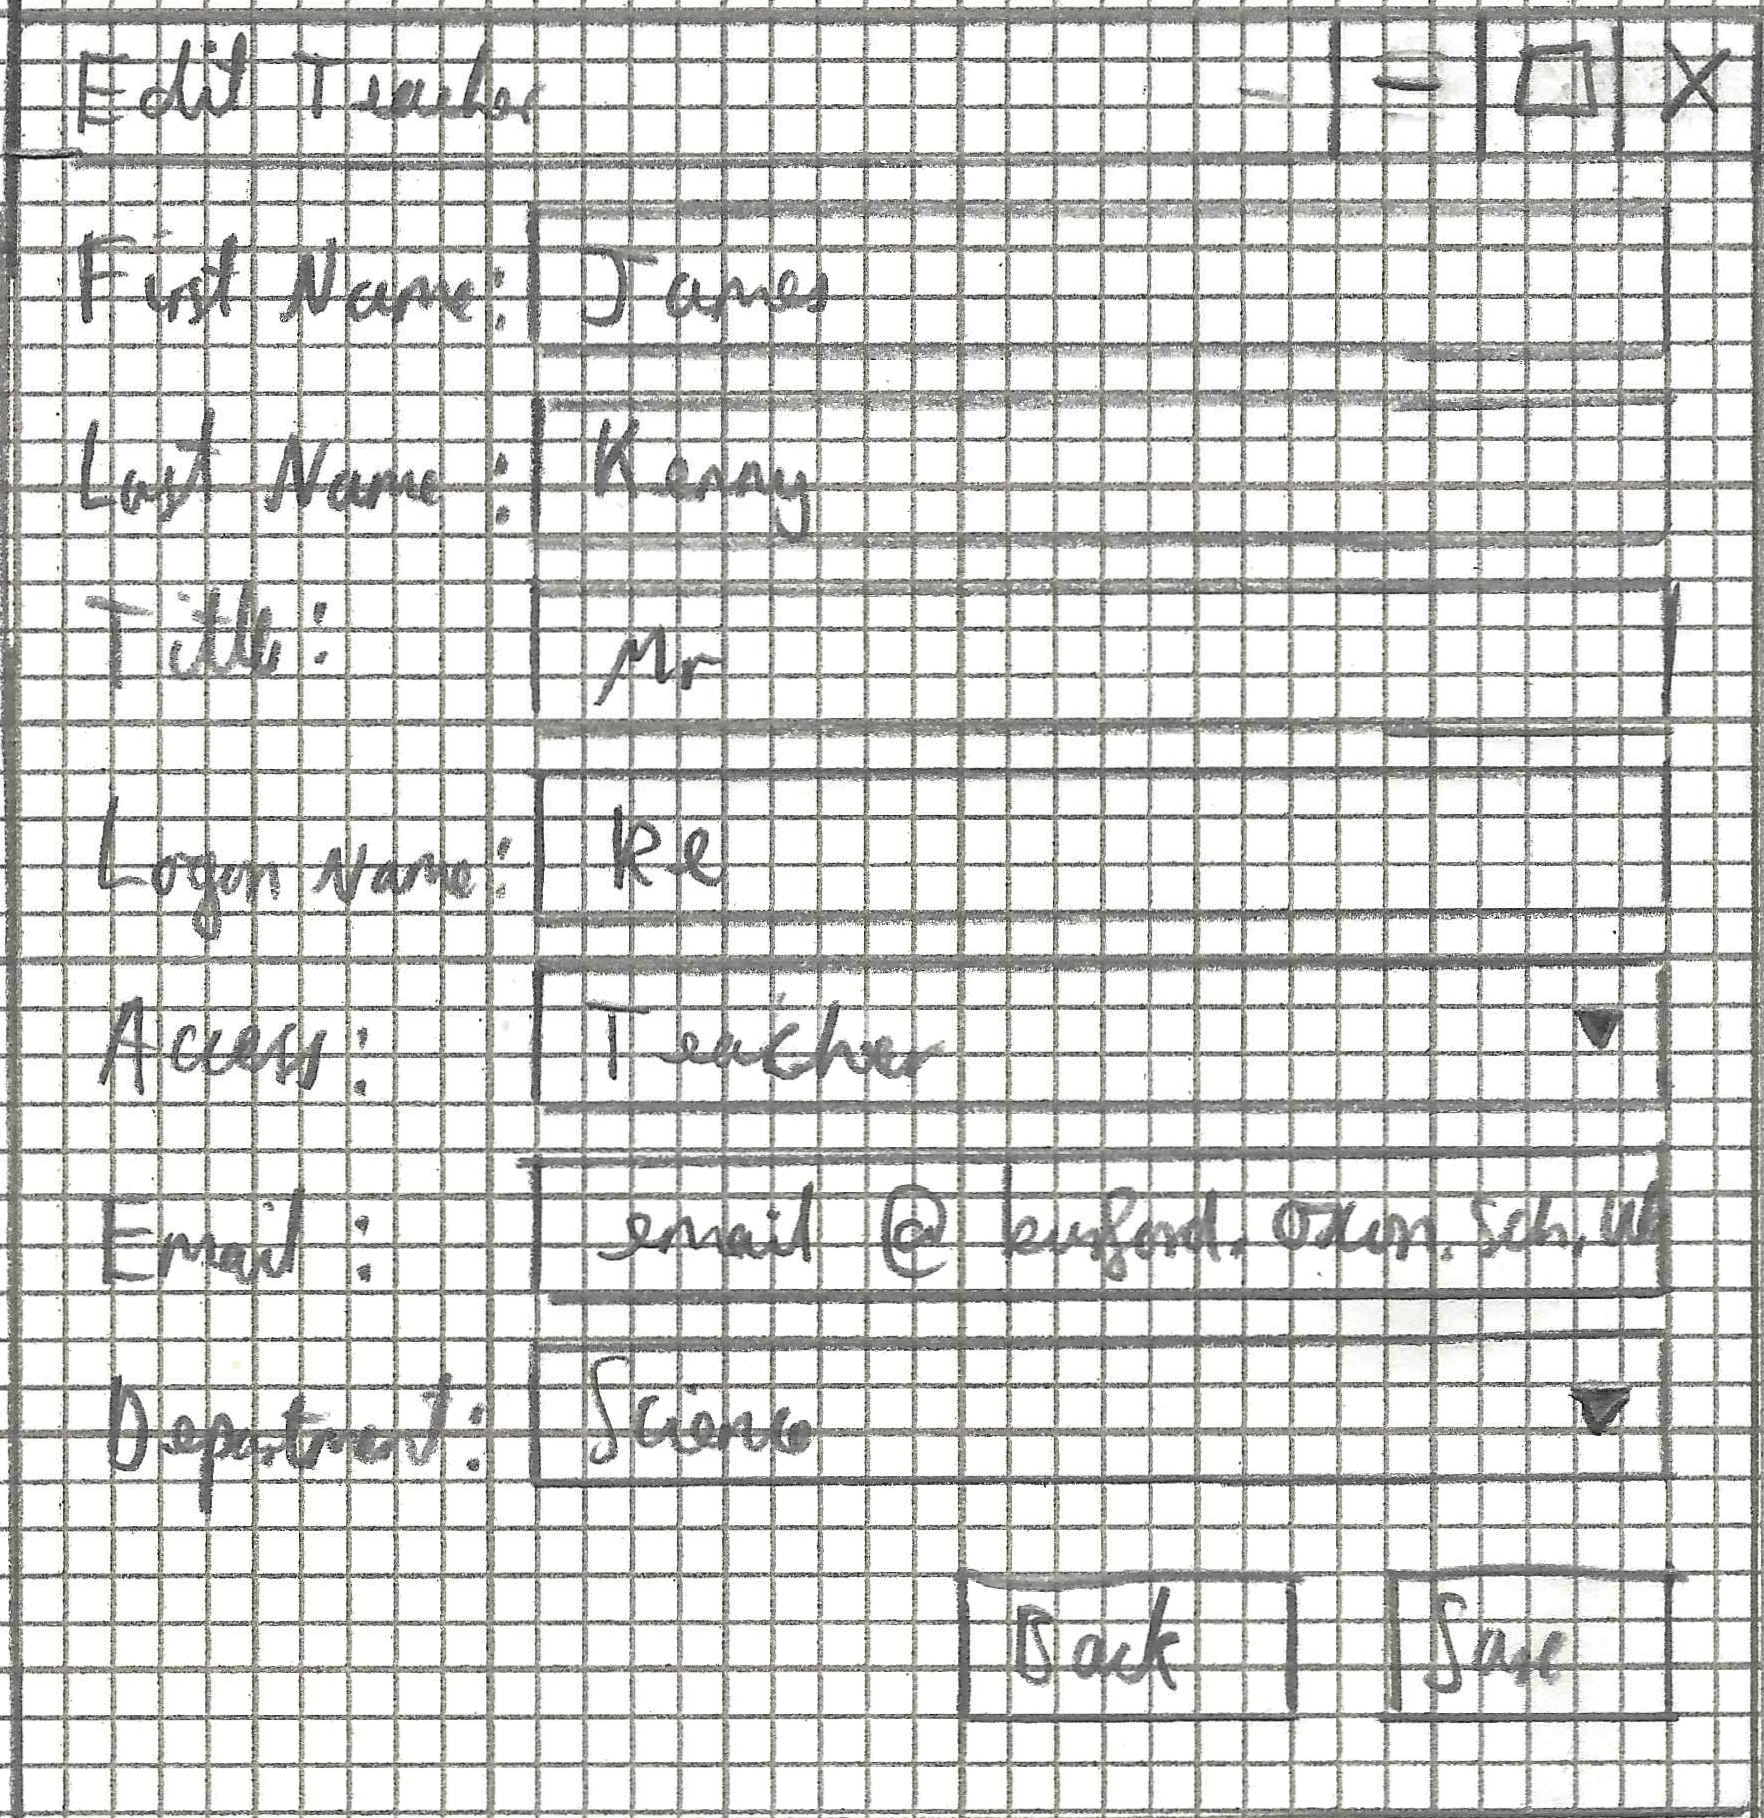 Edit Teacher
First Name: James
Last Name: Kenny
Title: Mr
Logon Name: ke
Access: Teacher
Email: email @ burford.oxon.sch.uk
Department: Science
Back Save